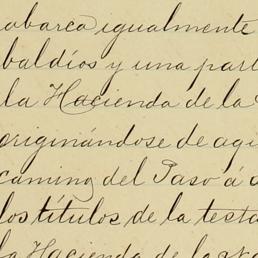 abarca igualmente
baldíos y una part
la Hacienda de la
originándose de aqu
camino del Paso á
los títulos de la testa
la Hacienda de la